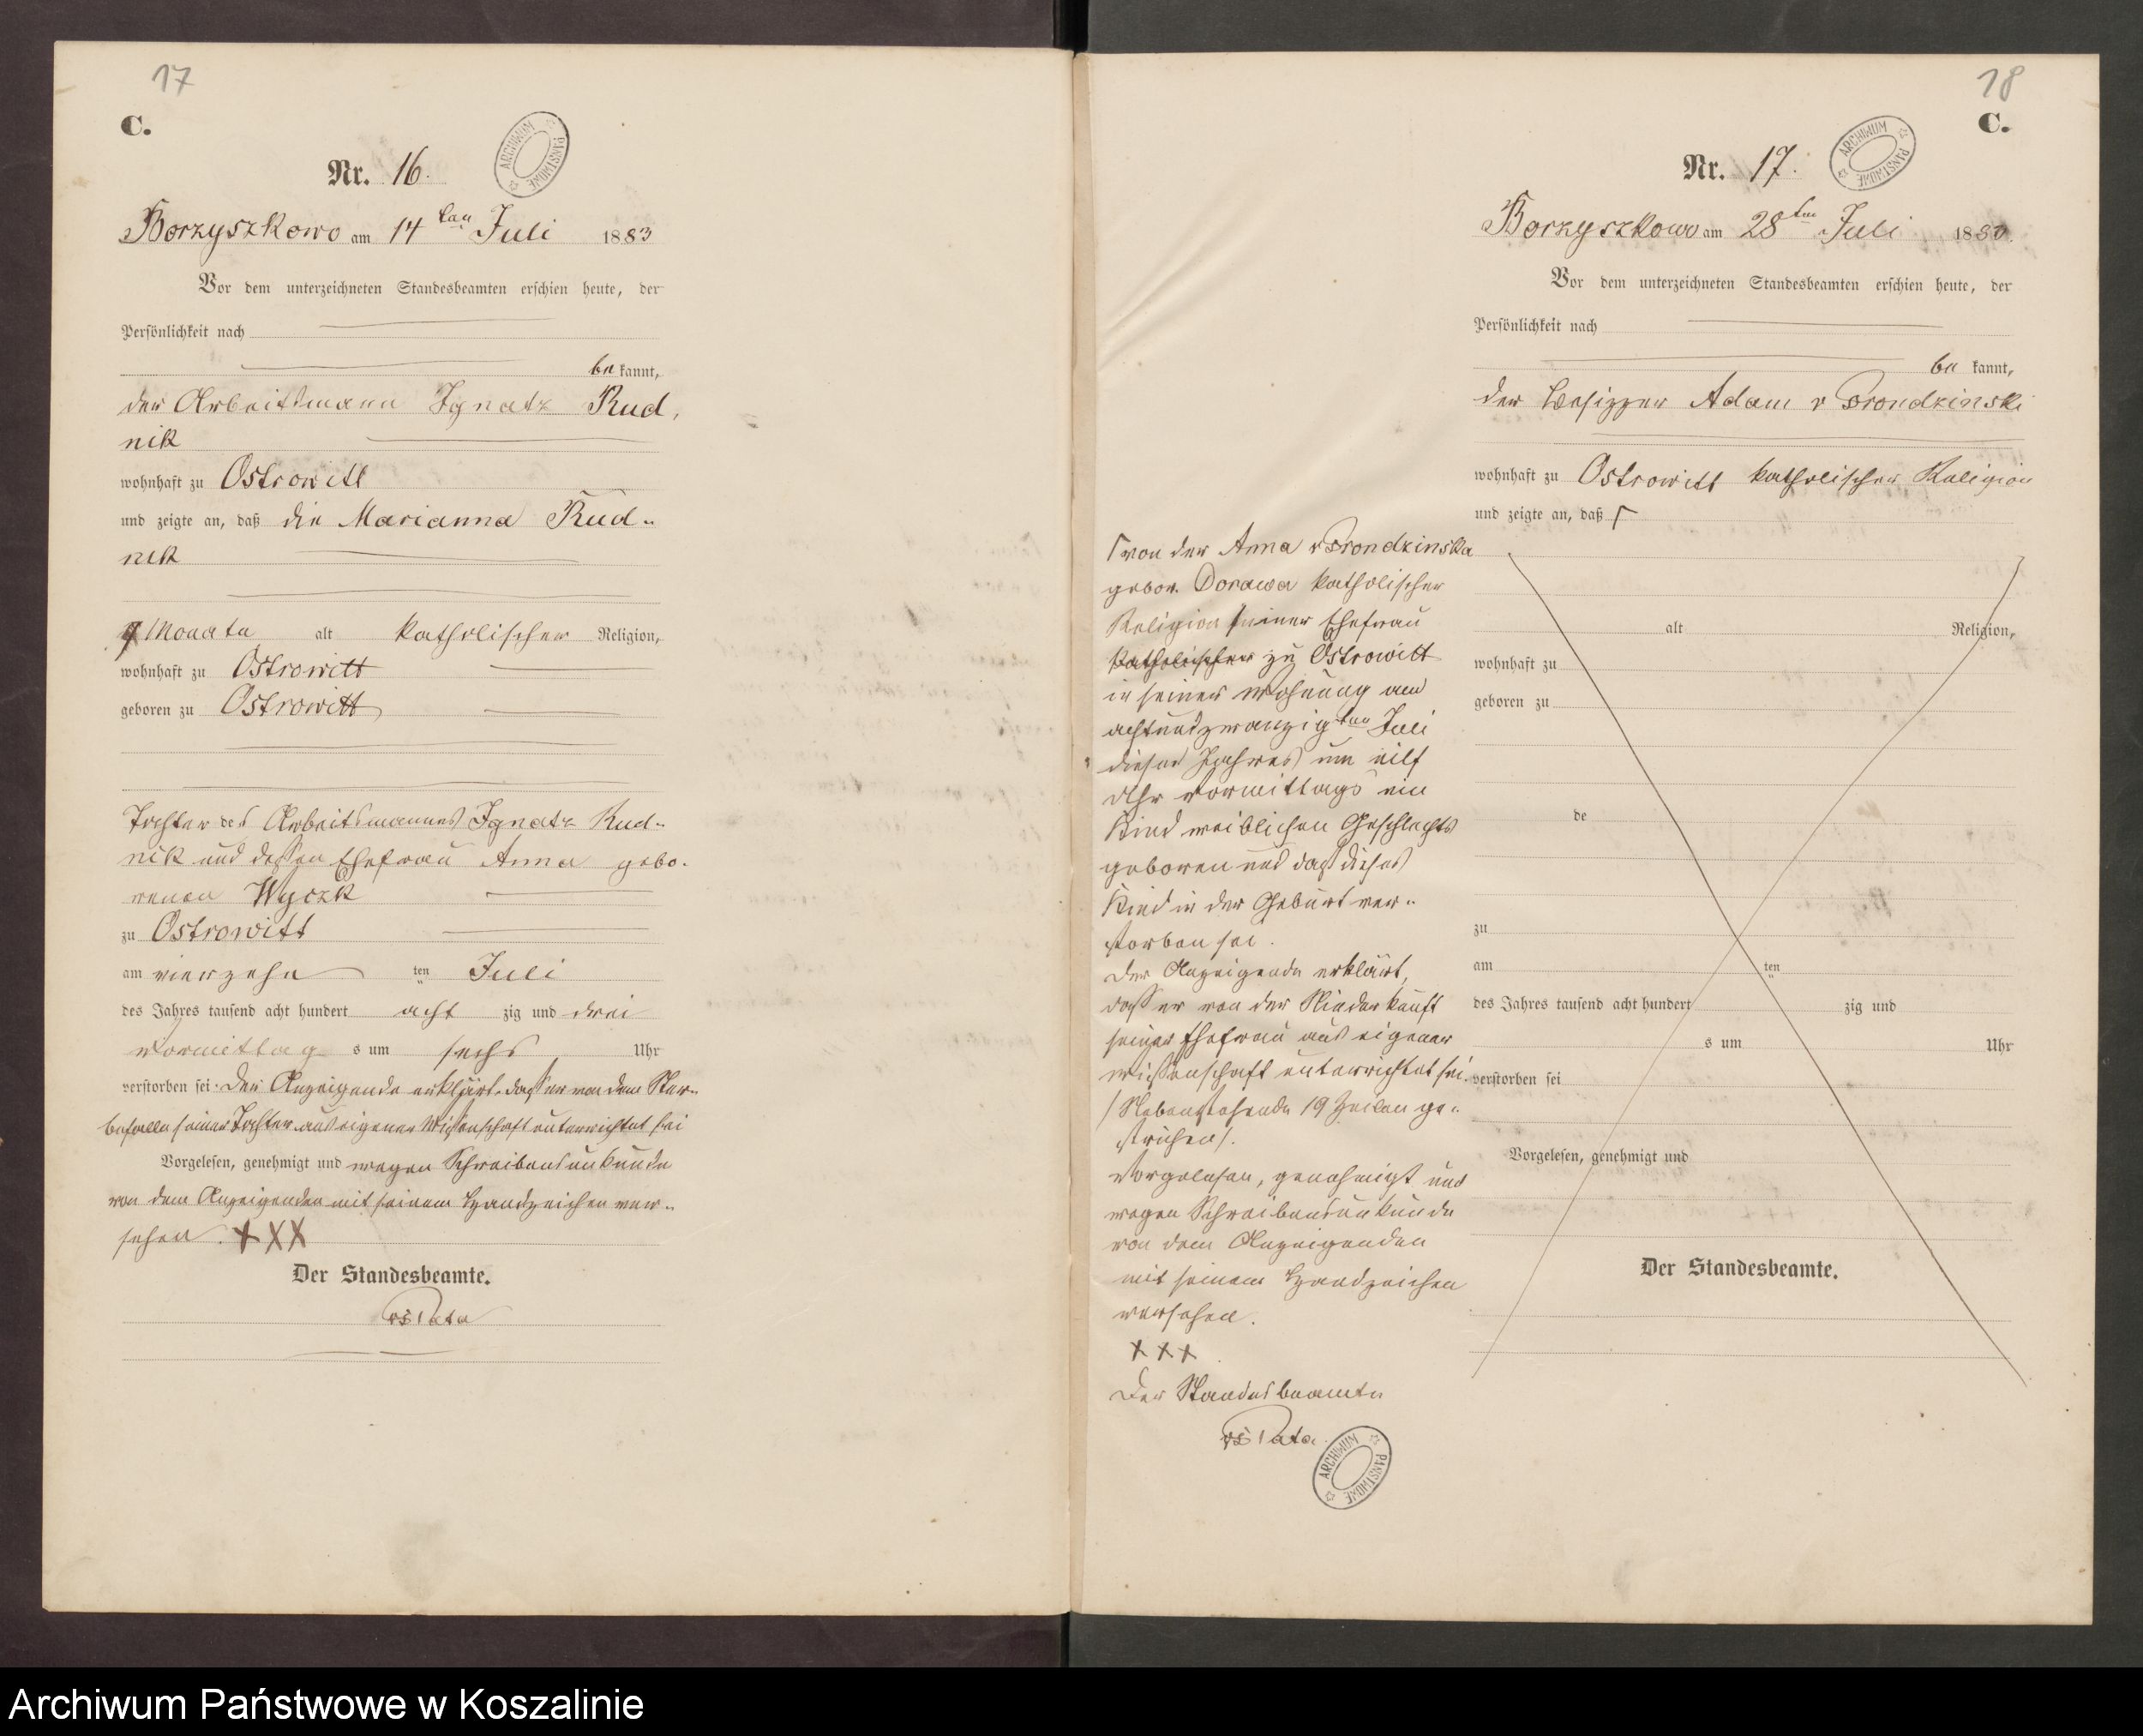 17
C.
ARCHIWUM PAŃSTWOWE
Nr. 16.
Borzyszkowo am 14ten Juli 1883
Vor dem unterzeichneten Standesbeamten erschien heute, der
Persönlichkeit nach
be kannt,
der Arbeitsmann Ignatz Rud,
nik
wohnhaft zu Ostrowitt
und zeigte an, daß die Marianna Rud-
nik
Monate alt katholischer Religion,
wohnhaft zu Ostrowitt
geboren zu Ostrowitt
Tochter des Arbeitsmannes Ignatz Rud-
nik und dessen Ehefrau Anna gebo-
renen Wyczk
zu Ostrowitt
am vierzehn ten Juli
des Jahres tausend acht hundert acht zig und drei
Vormittag s um sechs Uhr
verstorben sei. Der Anzeigende erklärt, daß er von dem Ster-
befalle seiner Tochter aus eigener Wissenschaft unterrichtet sei
Vorgelesen, genehmigt und wegen Schreibensunkunde
von dem Anzeigenden mit seinem Handzeichen ver-
sehen. XXX
Der Standesbeamte.
18
C.
ARCHIWUM PAŃSTWOWE
Nr. 17.
Borzyszkowo am 28ten Juli 1883.
Vor dem unterzeichneten Standesbeamten erschien heute, der
Persönlichkeit nach
be kannt,
der Besitzer Adam v Prondzinski
wohnhaft zu Ostrowitt katholischer Religion
und zeigte an, daß Γ
Γ von der Anna v Prondzinska
gebor. Dorawa katholischer
Religion seiner Ehefrau
katholischer zu Ostrowitt
in seiner Wohnung am
achtundzwanzigten Juli
dieses Jahres um eilf
Uhr Vormittags ein
Kind weiblichen Geschlechts
geboren und daß dieses
Kind in der Geburt ver-
storben sei.
Der Anzeigende erklärt,
daß er von der Niederkunft
seiner Ehefrau aus eigener
Wissenschaft unterrichtet sei.
/Nebenstehende 19 Zeilen ge-
strichen/.
Vorgelesen, genehmigt und
wegen Schreibensunkunde
von dem Anzeigenden
mit seinem Handzeichen
versehen.
XXX
Der Standesbeamte
ARCHIWUM PAŃSTWOWE
alt Religion,
wohnhaft zu
geboren zu
de
zu
am ten
des Jahres tausend acht hundert zig und
s um Uhr
verstorben sei
Vorgelesen, genehmigt und
Der Standesbeamte.
Archiwum Państwowe w Koszalinie